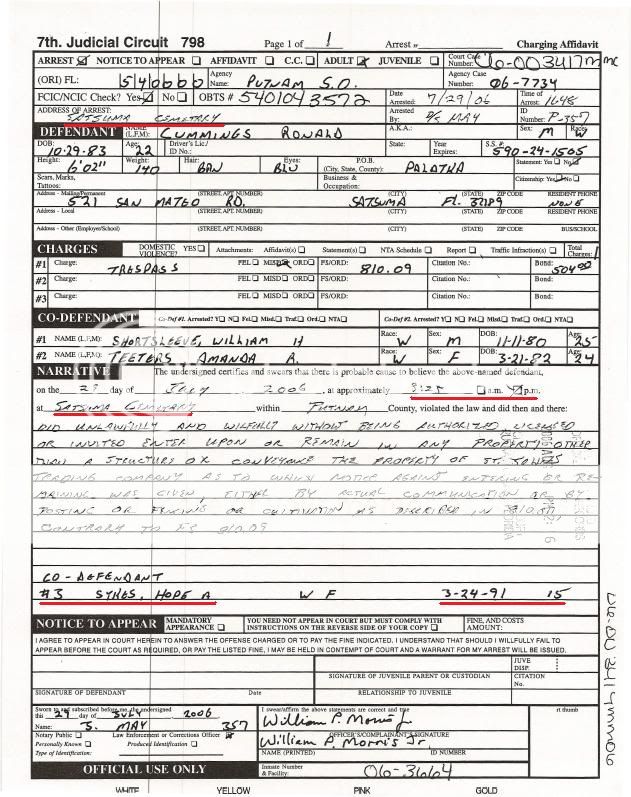 7th. Judicial Circuit 798 Page 1 of 1 Arrest # Charging Affidavit
ARREST NOTICE TO APPEAR AFFIDAVIT C.C. ADULT JUVENILE Court Case Number: 06-003417mm
(ORI) FL: 540000 Agency Name PUTNAM S.O. Agency Case Number: 06-7734
FCIC/NCIC Check? Yes No OBTS # 5401043572 Date Arrested: 7/29/06 Time of Arrest: 1648
ADDRESS OF ARREST: SATSUMA CEMETARY Arrested By: D/S MAY ID Number: P-357
DEFENDANT NAME (L,F,M): CUMMINGS RONALD A.K.A.: Sex: M Race: W
DOB: 10-29-83 Age: 22 Driver's Lic./ ID No.: State: Year Expires: S.S. # 590-24-1505
Height: 6'02" Weight: 140 Hair: BRN Eyes: BLU P.O.B. (City, State, County): PALATKA Statement: Yes No
Scars, Marks, Tattoos: Business & Occupation: Citizenship: Yes No
Address - Mailing/Permanent (STREET, APT. NUMBER) (CITY) (STATE) ZIP CODE RESIDENT PHONE
521 SAN MATEO RD. SATSUMA FL. 32189 NONE
Address - Local (STREET, APT. NUMBER) (CITY) (STATE) ZIP CODE RESIDENT PHONE
Address - Other (Employer/School) (STREET, APT. NUMBER) (CITY) (STATE) ZIP CODE BUS/SCHOOL
CHARGES DOMESTIC VIOLENCE? YES Attachments: Affidavit(s) Statement(s) NTA Schedule Report Traffic Infraction(s) Total Charges: 1
#1 Charge: TRESPASS FEL MISD ORD FS/ORD: 810.09 Citation No.: Bond: 504.00
#2 Charge: FEL MISD ORD FS/ORD: Citation No.: Bond:
#3 Charge: FEL MISD ORD FS/ORD: Citation No.: Bond:
CO-DEFENDANT Co-Def #1. Arrested? Y N Fel. Misd. Traf. Ord. NTA Co-Def #2. Arrested? Y N Fel. Misd. Traf. Ord. NTA
#1 NAME (L,F,M) SHORTSLEEVE, WILLIAM H Race: W Sex: M DOB: 11-11-80 Age: 25
#2 NAME (L,F,M) TEETERS AMANDA R. Race: W Sex: F DOB: 3-21-82 Age: 24
NARRATIVE The undersigned certifies and swears that there is probable cause to believe the above-named defendant,
on the 29 day of JULY 2006, at approximately 3:25 a.m. p.m.
at SATSUMA CEMETARY within PUTNAM County, violated the law and did then and there:
DID UNLAWFULLY AND WILFULLY WITHOUT BEING AUTHORIZED, LICENSED
OR INVITED ENTER UPON OR REMAIN IN ANY PROPERTY OTHER
THAN A STRUCTURE OR CONVEYANCE THE PROPERTY OF ST. JOHNS
TRADING COMPANY AS TO WHICH NOTICE AGAINST ENTERING OR RE-
MAINING WAS GIVEN, EITHER BY ACTUAL COMMUNICATION OR BY
POSTING OR FENCING OR CULTIVATION AS DESCRIBED IN 810.011
CONTRARY TO FS 810.09
CO-DEFENDANT
#3 SYKES, HOPE A W F 3-24-91 15
NOTICE TO APPEAR MANDATORY APPEARANCE YOU NEED NOT APPEAR IN COURT BUT MUST COMPLY WITH INSTRUCTIONS ON THE REVERSE SIDE OF YOUR COPY FINE, AND COSTS AMOUNT:
I AGREE TO APPEAR IN COURT HEREIN TO ANSWER THE OFFENSE CHARGED OR TO PAY THE FINE INDICATED. I UNDERSTAND THAT SHOULD I WILLFULLY FAIL TO
APPEAR BEFORE THE COURT AS REQUIRED, OR PAY THE LISTED FINE, I MAY BE HELD IN CONTEMPT OF COURT AND A WARRANT FOR MY ARREST WILL BE ISSUED.
JUVE DISP.
SIGNATURE OF JUVENILE PARENT OR CUSTODIAN CITATION No.
SIGNATURE OF DEFENDANT Date RELATIONSHIP TO JUVENILE
Sworn to and subscribed before me, the undersigned I swear/affirm the above statements are correct and true rt thumb
this 29 day of JULY 2006 William P. Morris Jr
Name: J. MAY 357 OFFICER'S/COMPLAINANT'S SIGNATURE
Notary Public Law Enforcement or Corrections Officer William P. Morris Jr
Personally Known Produced Identification NAME (PRINTED) ID NUMBER
Type of Identification:
OFFICIAL USE ONLY Inmate Number & Facility: 06-3664
WHITE YELLOW PINK GOLD